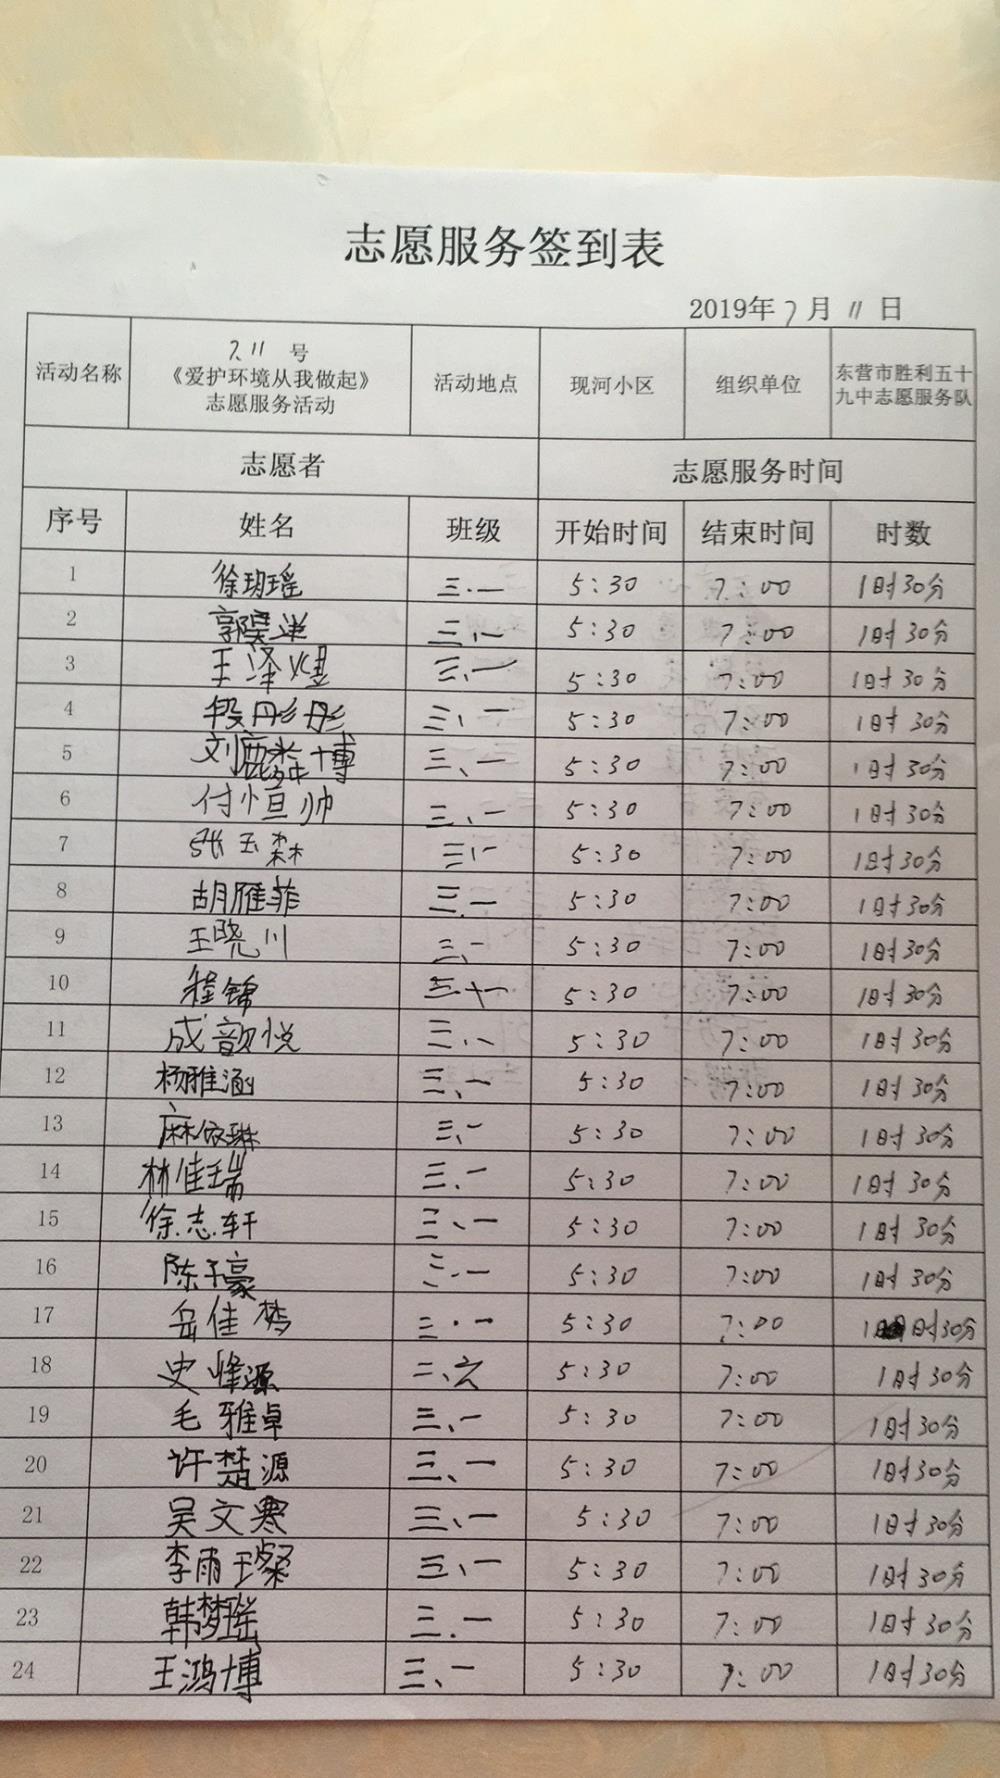 志愿服务签到表
2019年7月11日
活动名称 7.11 号《爱护环境从我做起》志愿服务活动 活动地点 现河小区 组织单位 东营市胜利五十九中志愿服务队
志愿者 志愿服务时间
序号 姓名 班级 开始时间 结束时间 时数
1 徐玥瑶 三.一 5:30 7:00 1时30分
2 郭昊 三、一 5:30 7:00 1时30分
3 王泽煜 三、一 5:30 7:00 1时30分
4 段彤彤 三、一 5:30 7:00 1时30分
5 刘麟博 三、一 5:30 7:00 1时30分
6 付恒帅 三、一 5:30 7:00 1时30分
7 张玉森 三、一 5:30 7:00 1时30分
8 胡雁菲 三.一 5:30 7:00 1时30分
9 王晓川 三、一 5:30 7:00 1时30分
10 程锦 三.十一 5:30 7:00 1时30分
11 成韵悦 三、八 5:30 7:00 1时30分
12 杨雅涵 三、一 5:30 7:00 1时30分
13 麻依琳 三、一 5:30 7:00 1时30分
14 林佳瑞 三、一 5:30 7:00 1时30分
15 徐志轩 三、一 5:30 7:00 1时30分
16 陈子豪 三.一 5:30 7:00 1时30分
17 岳佳梦 三.一 5:30 7:00 1时30分
18 史峰源 二、六 5:30 7:00 1时30分
19 毛雅卓 三、一 5:30 7:00 1时30分
20 许楚源 三、一 5:30 7:00 1时30分
21 吴文寒 三、一 5:30 7:00 1时30分
22 李雨璨 三、一 5:30 7:00 1时30分
23 韩梦瑶 三.一 5:30 7:00 1时30分
24 王鸿博 三、一 5:30 7:00 1时30分